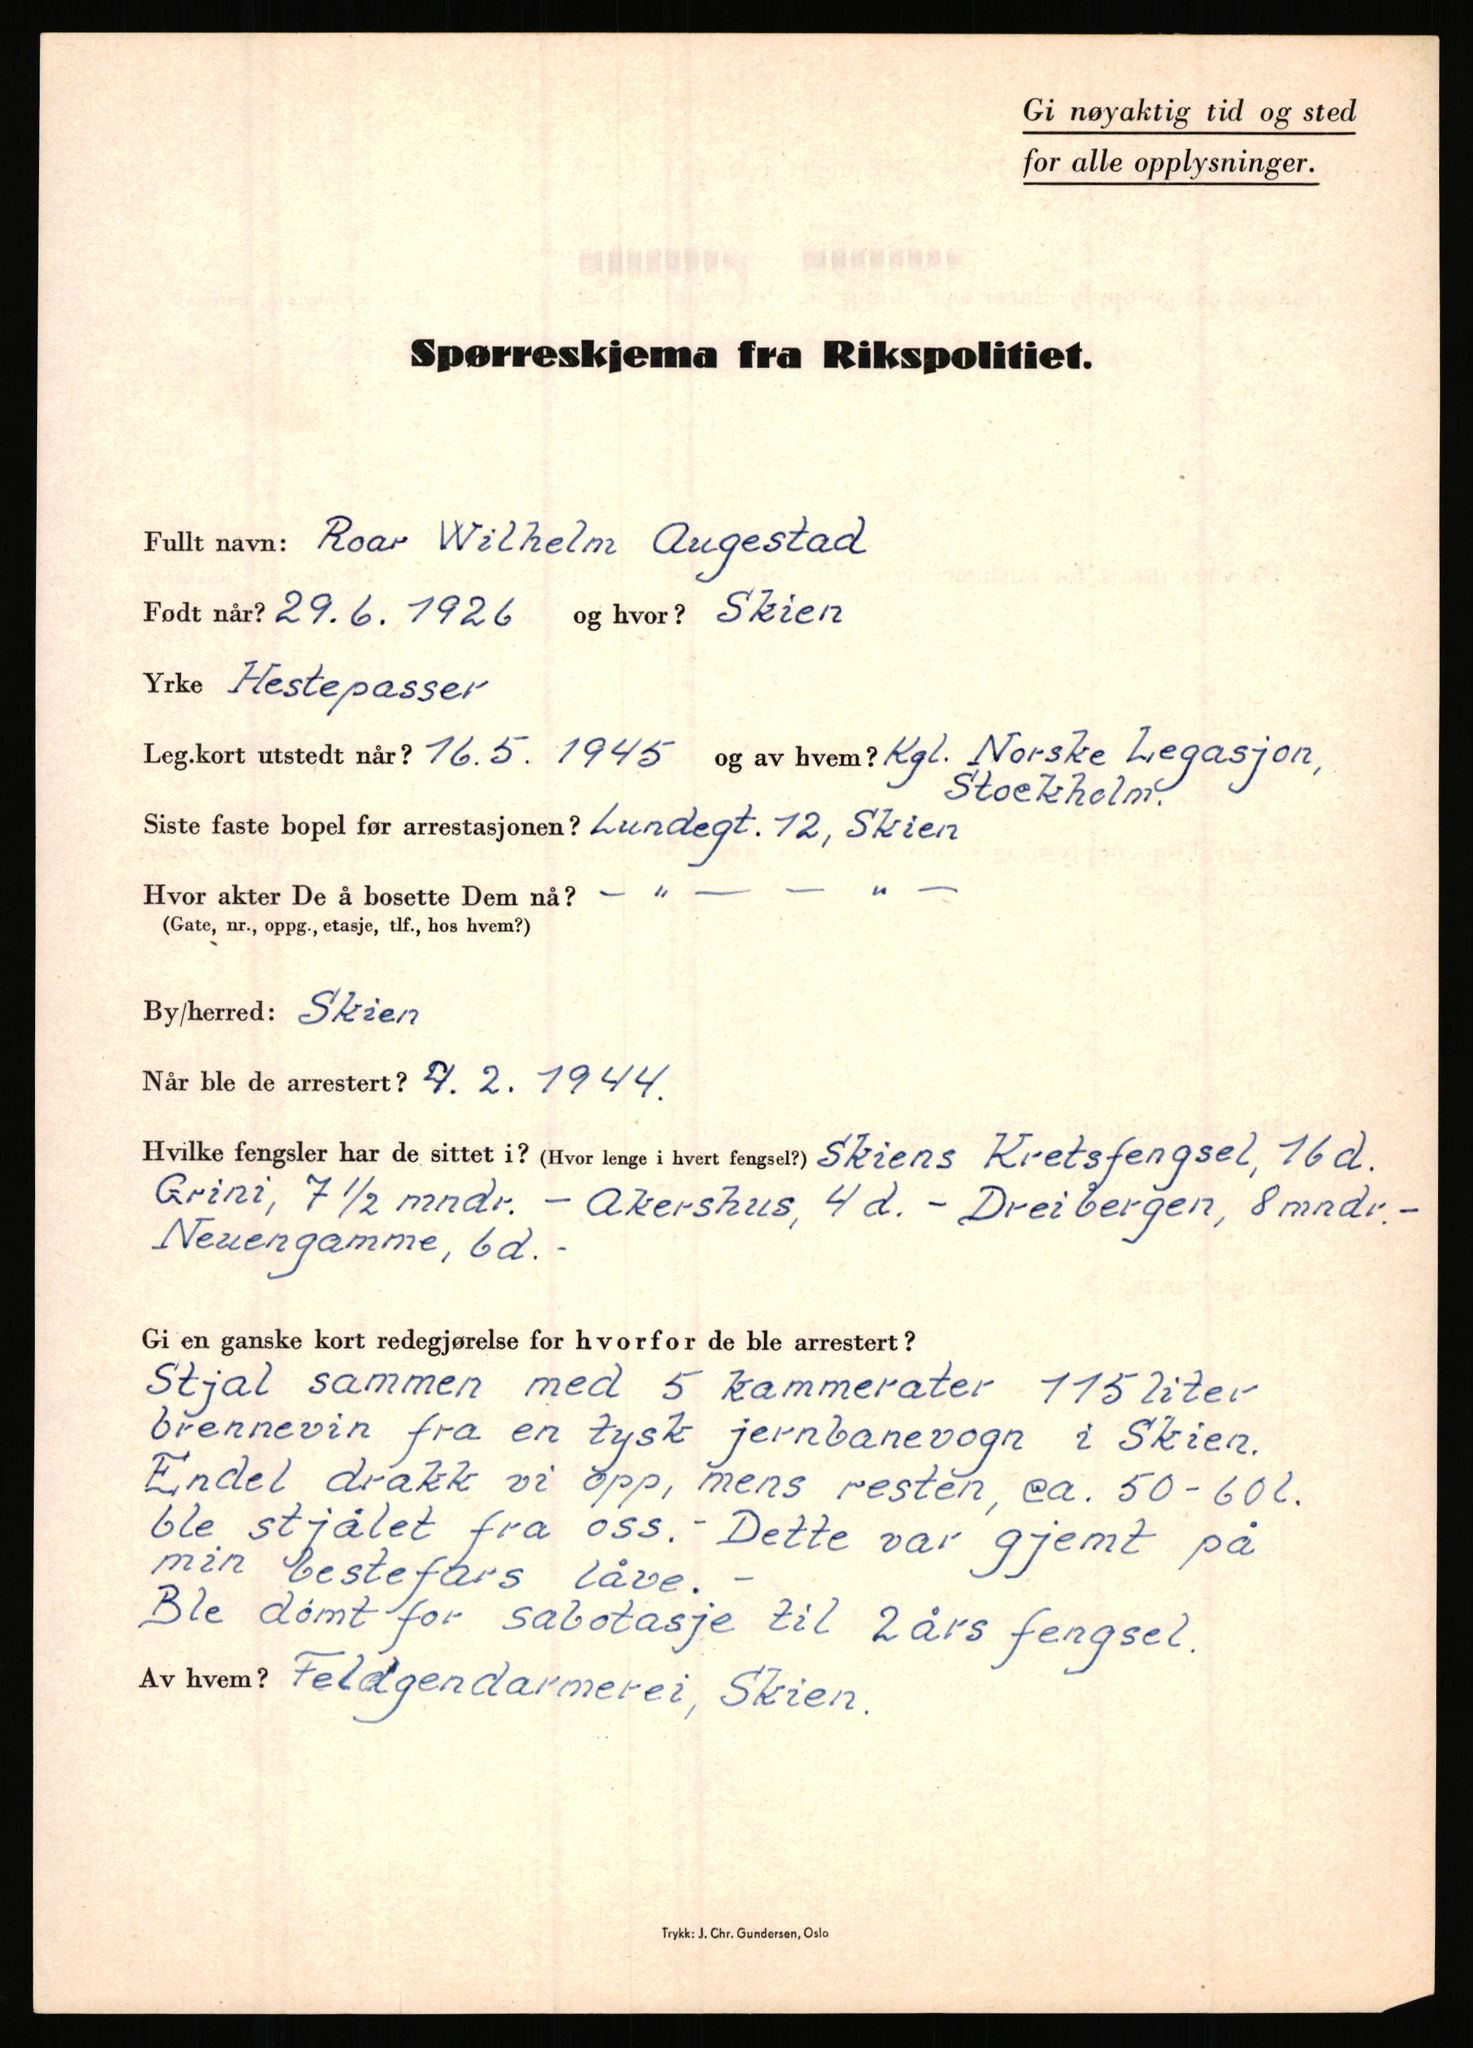 Gi nøyaktig tid og sted
for alle opplysninger.
Spørreskjema fra Rikspolitiet.
Fullt navn: Roar Wilhelm Augestad
Født når? 29.6.1926 og hvor? Skien
Yrke Hestepasser
Leg.kort utstedt når? 16.5.1945 og av hvem? Kgl. Norske Legasjon,
Stockholm.
Siste faste bopel før arrestasjonen? Lundegt. 12, Skien
Hvor akter De å bosette Dem nå? — " — — " —
(Gate, nr., oppg., etasje, tlf., hos hvem?)
By/herred: Skien
Når ble de arrestert? 2. 1944.
Hvilke fengsler har de sittet i? (Hvor lenge i hvert fengsel?) Skiens Kretsfengsel, 16 d.
Grini, 7 1/2 mndr. - Akershus, 4 d. - Dreibergen, 8 mndr. -
Neuengamme, 6 d. -
Gi en ganske kort redegjørelse for hvorfor de ble arrestert?
Stjal sammen med 5 kammerater 115 liter
brennevin fra en tysk jernbanevogn i Skien.
Endel drakk vi opp, mens resten, ca. 50-60 l.
ble stjålet fra oss. - Dette var gjemt på
min bestefars låve. -
Ble dømt for sabotasje til 2 års fengsel.
Av hvem? Feldgendarmerei, Skien.
Trykk: J. Chr. Gundersen, Oslo